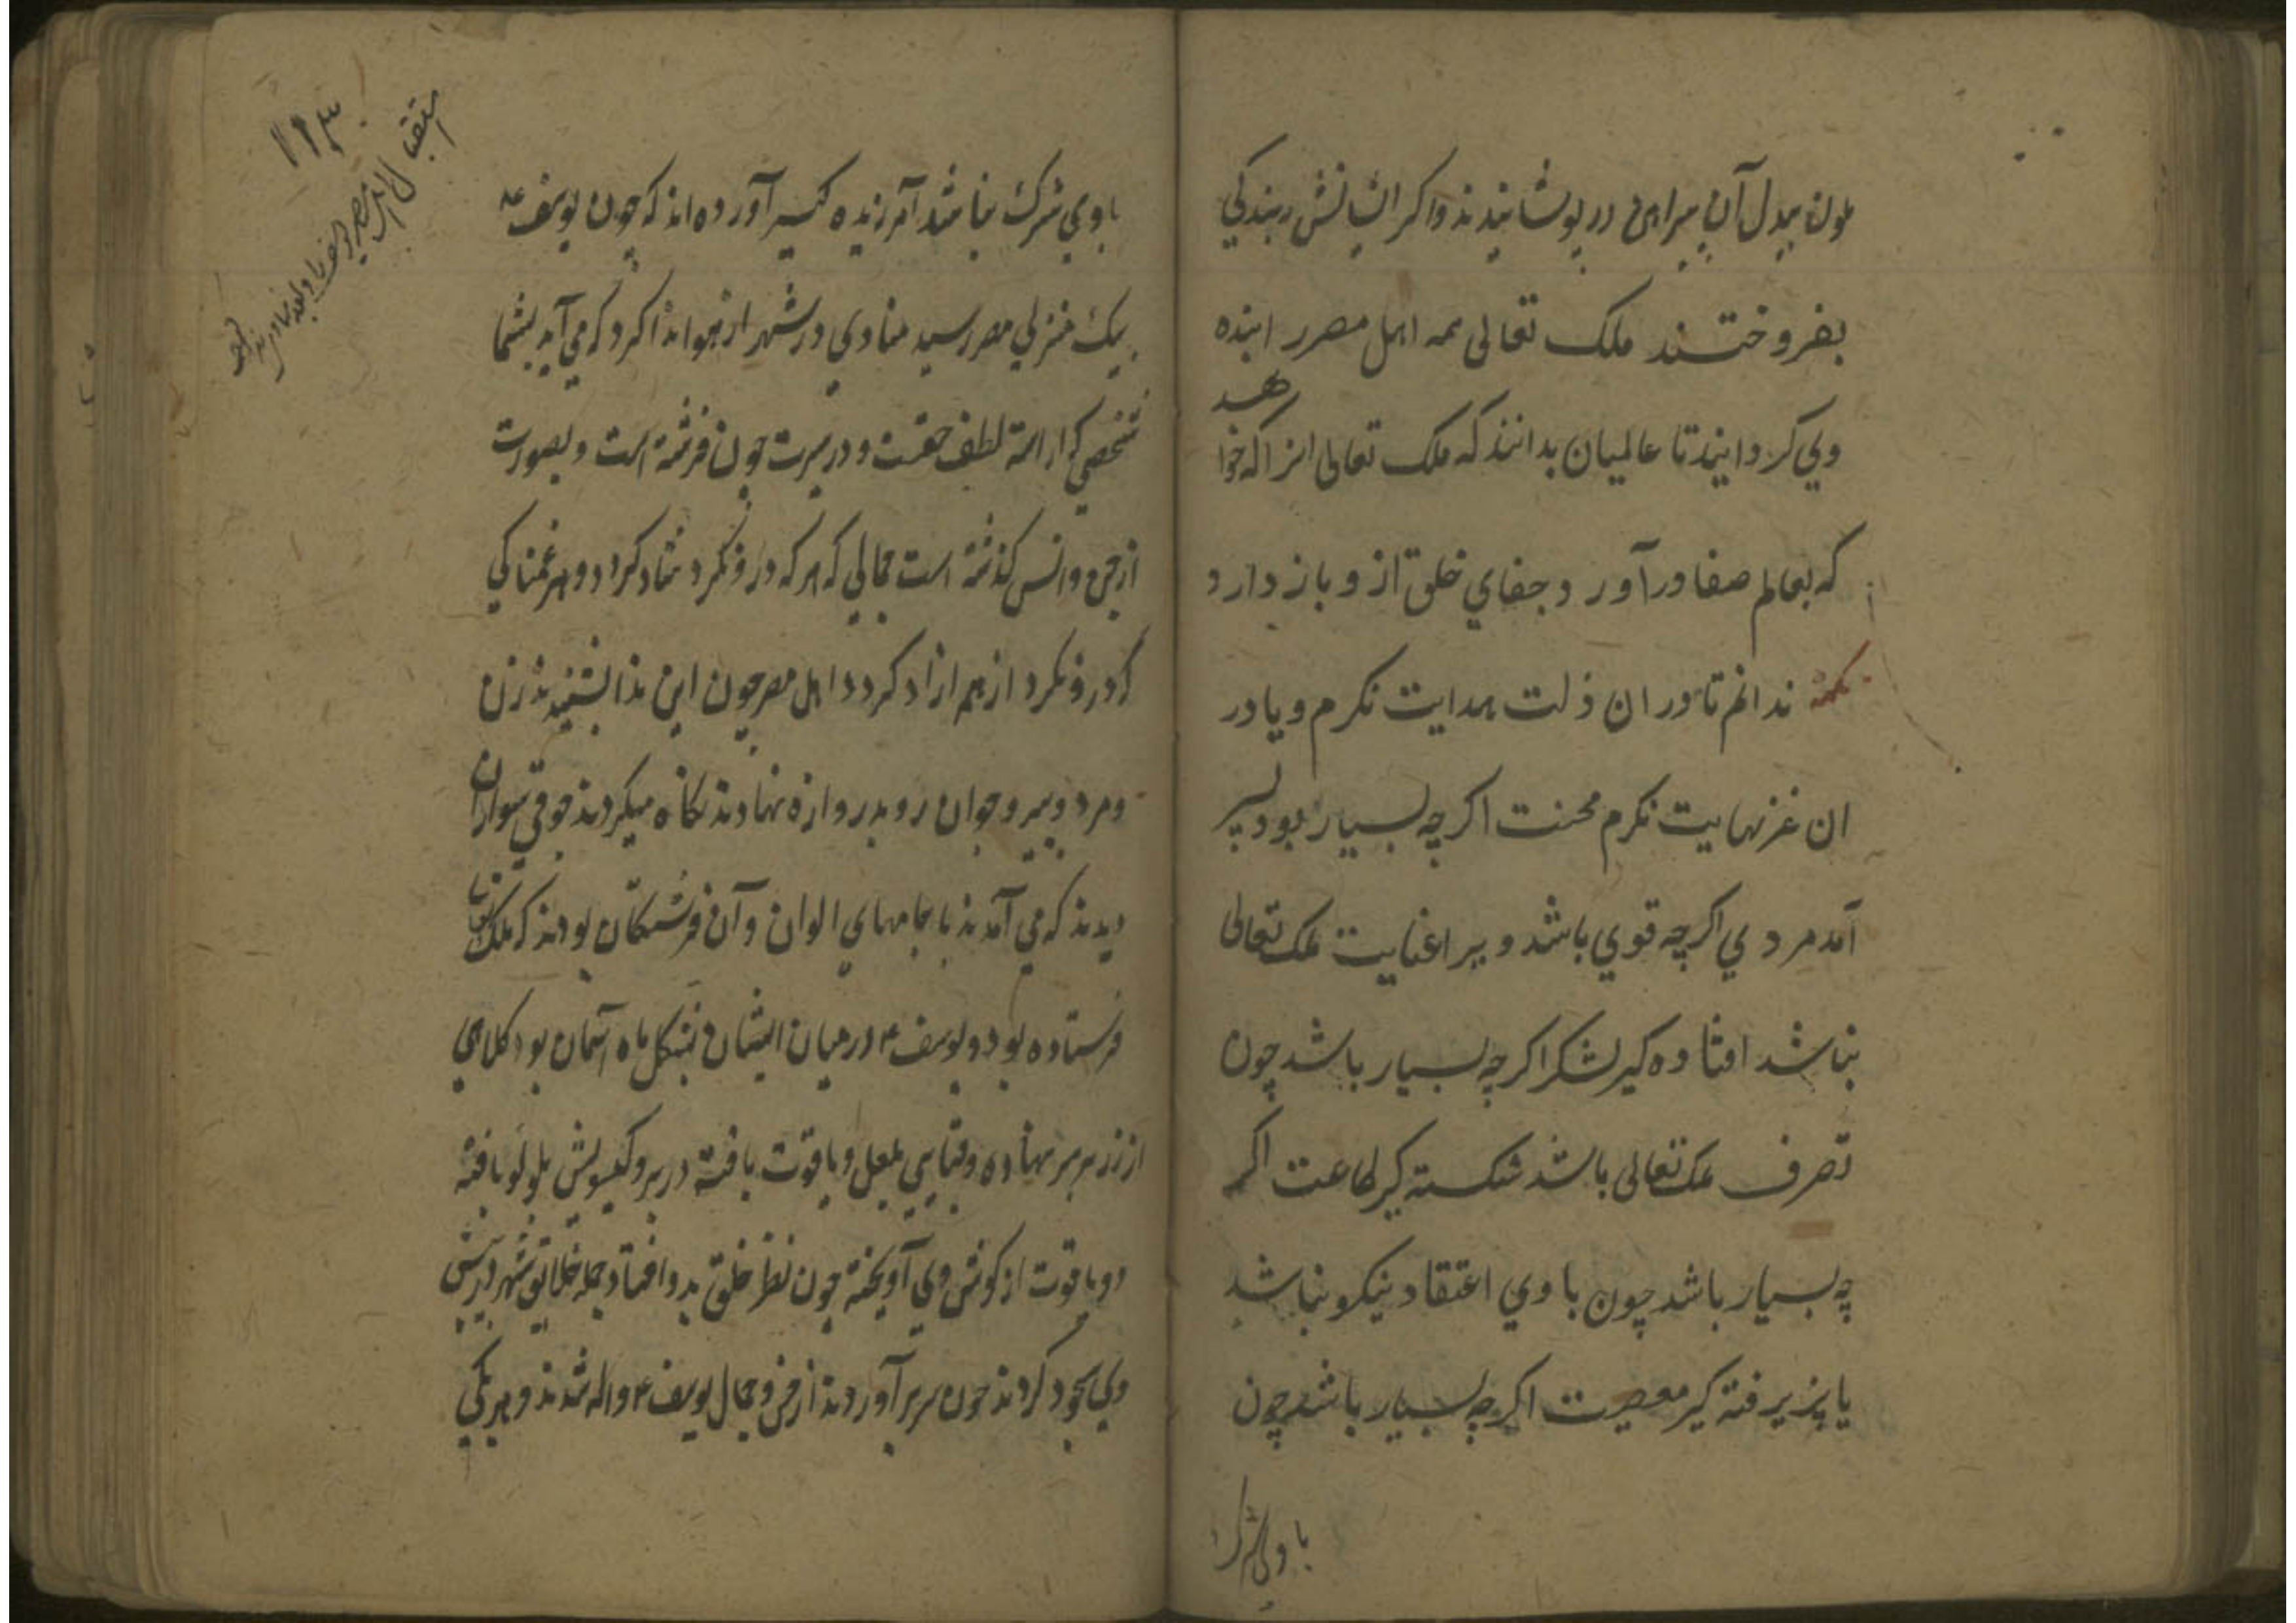 ملون ببدل آن پیراهن در پوشانیدند واکر ایشانش ببندکی
بفروختند ملک تعالی همه اهل مصر را بنده
وی کردانید تا عالمیان بدانند که ملک تعالی انرا که خواهد
که بعالم صفا در آورد جفای خلق از و باز دارد
نکته ندانم تا در ان ذلت بدایت نکرم و یا در
ان عز نهایت نکرم محنت اکرچه بسیار بود بسر
آمد مردی اکرچه قوی باشد و بر اعنایت ملک تعالی
نباشد افتاده کیر لشکر اکرچه بسیار باشد چون
تصرف ملک تعالی باشد شکسته کیر طاعت اکر
چه بسیار باشد چون با وی اعتقاد نیکو نباشد
پذیرفته کیر معصیت اکرچه بسیار باشد چون
با وی شرک
۱۱۳
استقبال اهل مصر
با وی شرک نباشد آمرزیده کیر آورده اند که چون یوسف ع
بیک منزلی مصر رسید منادی در شهر از هوا ندا کرد که می آید بشما
شخصی که اراسته لطف حقست و در سیرت چون فرشته است و بصورت
از جن وانس کذشته است جمالی که هر که درو نکرد شاد کردد و هر غمناکی
که درو نکرد از هم ازاد کردد اهل مصر چون این ندا بشنیدند زن
ومرد و پیر و جوان رو بدروازه نهادند نکاه میکردند جوقی سواران
دیدند که می آمدند با جامهای الوان و آن فرشتکان بودند که ملک تعالی
فرستاده بود و یوسف ع درمیان ایشان بشکل ماه آسمان بود کلاهی
از زر بر سر نهاده و قبایی بلعل و یاقوت بافته در بر و کیسویش بلولو بافته
دو یاقوت از کوش وی آویخته چون نظر خلق بدو افتاد جمله خلایق شهر در پیش
وی سجود کردند چون سر بر آوردند از حسن و جمال یوسف ع واله شدند و هر یکی